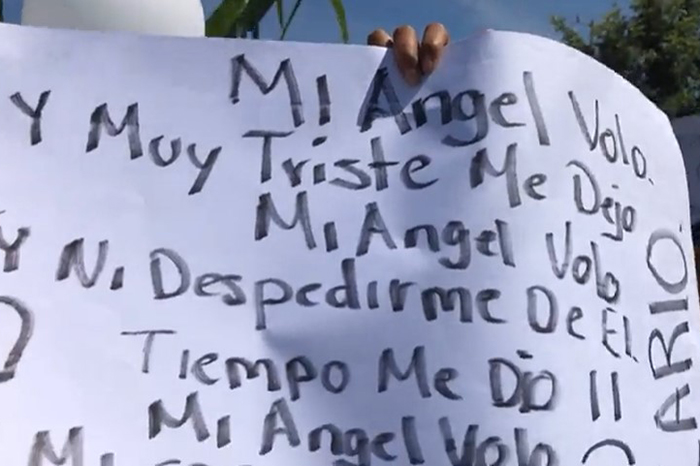 Mi Angel Volo.
Y Muy Triste Me Dejo
Mi Angel Volo
Y Ni Despedirme De El
Tiempo Me Dio !!
Mi Angel Volo
ARIO.